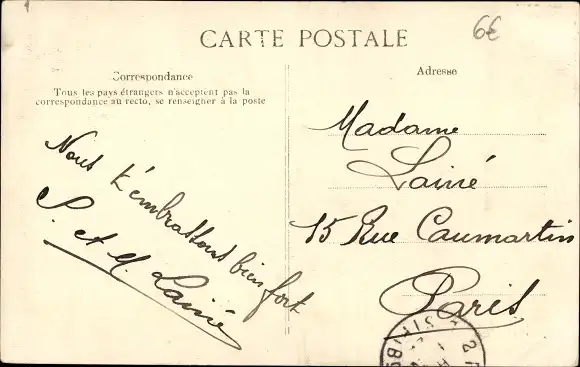 6€
CARTE POSTALE
Correspondance
Tous les pays étrangers n'acceptent pas la
correspondance au recto, se renseigner à la poste
Nous t'embrassons bien fort
S. et M. Lainé
Adresse
Madame
Lainé
15 Rue Caumartin
Paris